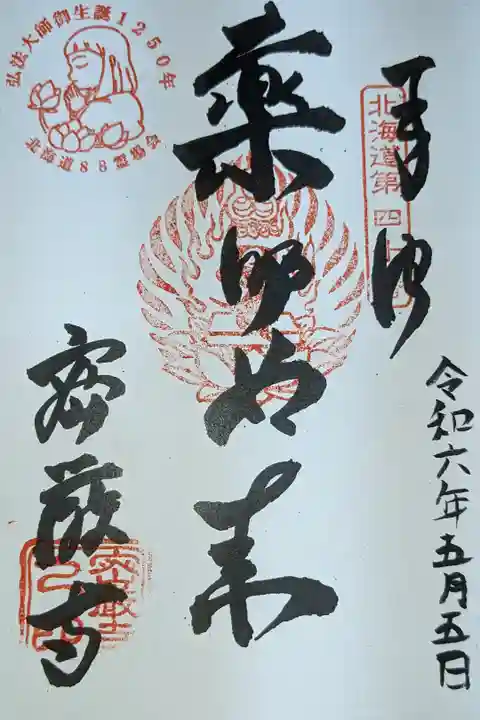 奉拝
北海道第四十
令和六年五月五日
薬師如来
弘法大師御生誕1250年
北海道88霊場会
密厳寺
密厳寺